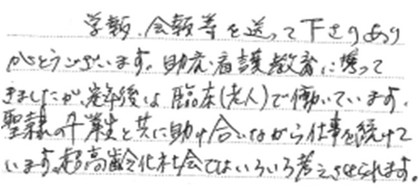 学報、会報等を送って下さりあり
がとうございます。助産、看護教育に携って
きましたが、定年後は臨床(老人)で働いています。
聖隷の卒業生と共に助け合いながら仕事を続けて
います。超高齢化社会ではいろいろ考えさせられます。